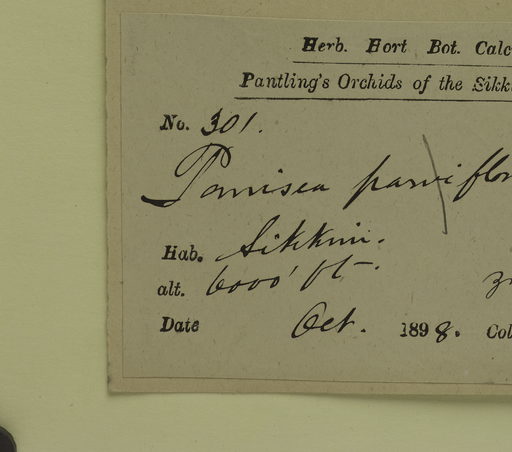 Herb. Hort Bot. Calc
Pantling's Orchids of the Sikk
No. 301.
Panisea parviflor
Hab. Sikkim.
alt. 6000' ft.
Date Oct. 1898. Col